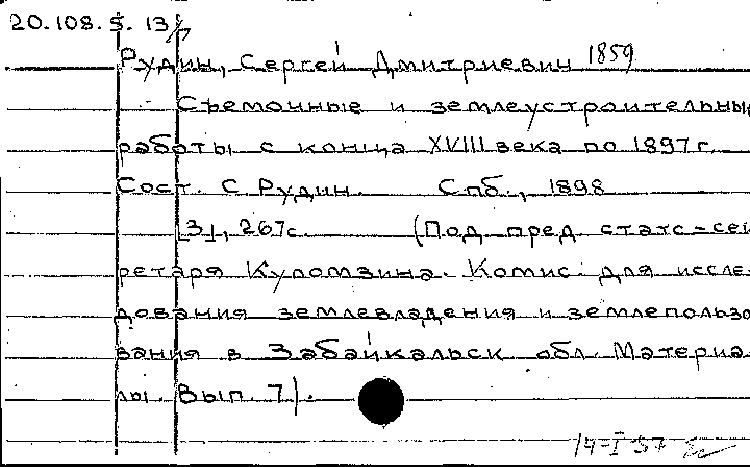 20.108.5.13/7
Рудин, Сергей Дмитриевич 1859
Съемочные и землеустроительные
работы с конца XVIII века по 1897 г.
Сост. С Рудин. Спб., 1898
[3], 267с. (Под пред статс-сек
ретаря Куломзина. Комис. для иссле
дования землевладения и землепользо
вания в Забайкальск обл. Материа
лы. Вып. 7).
14-I 57